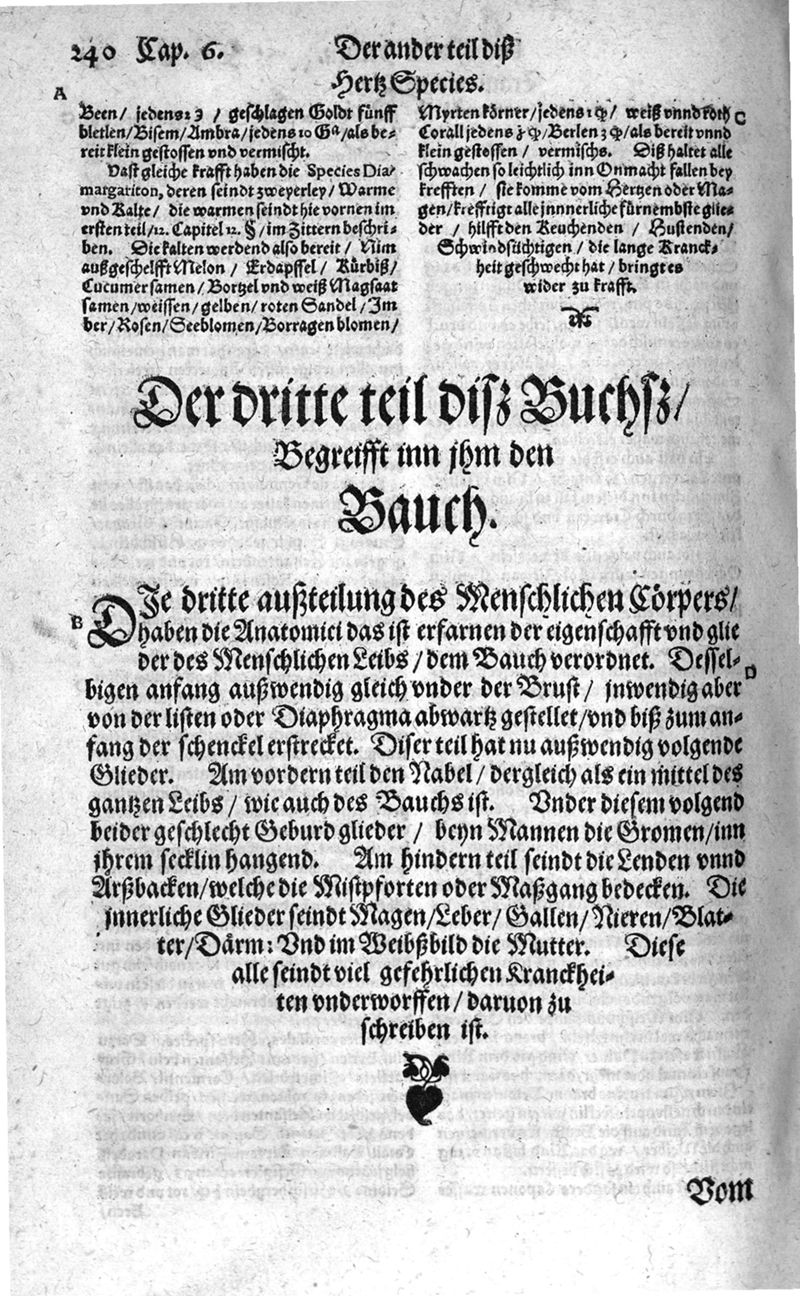 240 Cap. 6. Der ander teil diß
Hertz Species.
A
Been / jedens 2 ʒ / geschlagen Goldt fünff
bletlen/Bisem/Ambra/jedens 10 Gᵃ/als be-
reit klein gestossen vnd vermischt.
Vast gleiche krafft haben die Species Dia-
margariton, deren seindt zweyerley / Warme
vnd Kalte / die warmen seindt hie vornen im
ersten teil/12. Capitel 12. §/im Zittern beschri-
ben. Die kalten werdend also bereit / Nim
außgeschelfft Melon / Erdapssel / Kürbiß/
Cucumer samen / Bortzel vnd weiß Magsaat
samen/weissen/gelben/roten Sandel/Im
ber/Rosen/Seeblomen/Borragen blomen/
Myrten körner/jedens 1 / weiß vnnd roth
C
Corall jedens / Berlen /als bereit vnnd
klein gestossen / vermischs. Diß haltet alle
schwachen so leichtlich inn Onmacht fallen bey
krefften / sie komme vom Hertzen oder Ma-
gen/krefftigt alle jnnnerliche fürnembste glie-
der / hilfft den Keuchenden / Hustenden/
Schwindsüchtigen / die lange Kranck-
heit geschwecht hat / bringt es
wider zu krafft.
Der dritte teil disz Buchsz/
Begreifft inn jhm den
Bauch.
B
DIe dritte außteilung des Menschlichen Cörpers/
haben die Anatomici das ist erfarnen der eigenschafft vnd glie
der des Menschlichen Leibs / dem Bauch verordnet. Dessel-
D
bigen anfang außwendig gleich vnder der Brust / jnwendig aber
von der listen oder Diaphragma abwartz gestellet/vnd biß zum an-
fang der schenckel erstrecket. Diser teil hat nu außwendig volgende
Glieder. Am vordern teil den Nabel / dergleich als ein mittel des
gantzen Leibs / wie auch des Bauchs ist. Vnder diesem volgend
beider geschlecht Geburd glieder / beyn Mannen die Gromen/inn
jhrem secklin hangend. Am hindern teil seindt die Lenden vnnd
Arßbacken/welche die Mistpforten oder Maßgang bedecken. Die
jnnerliche Glieder seindt Magen/Leber/Gallen/Nieren/Blat-
ter/Därm: Vnd im Weibßbild die Mutter. Diese
alle seindt viel gefehrlichen Kranckhei-
ten vnderworffen / daruon zu
schreiben ist.
Vom